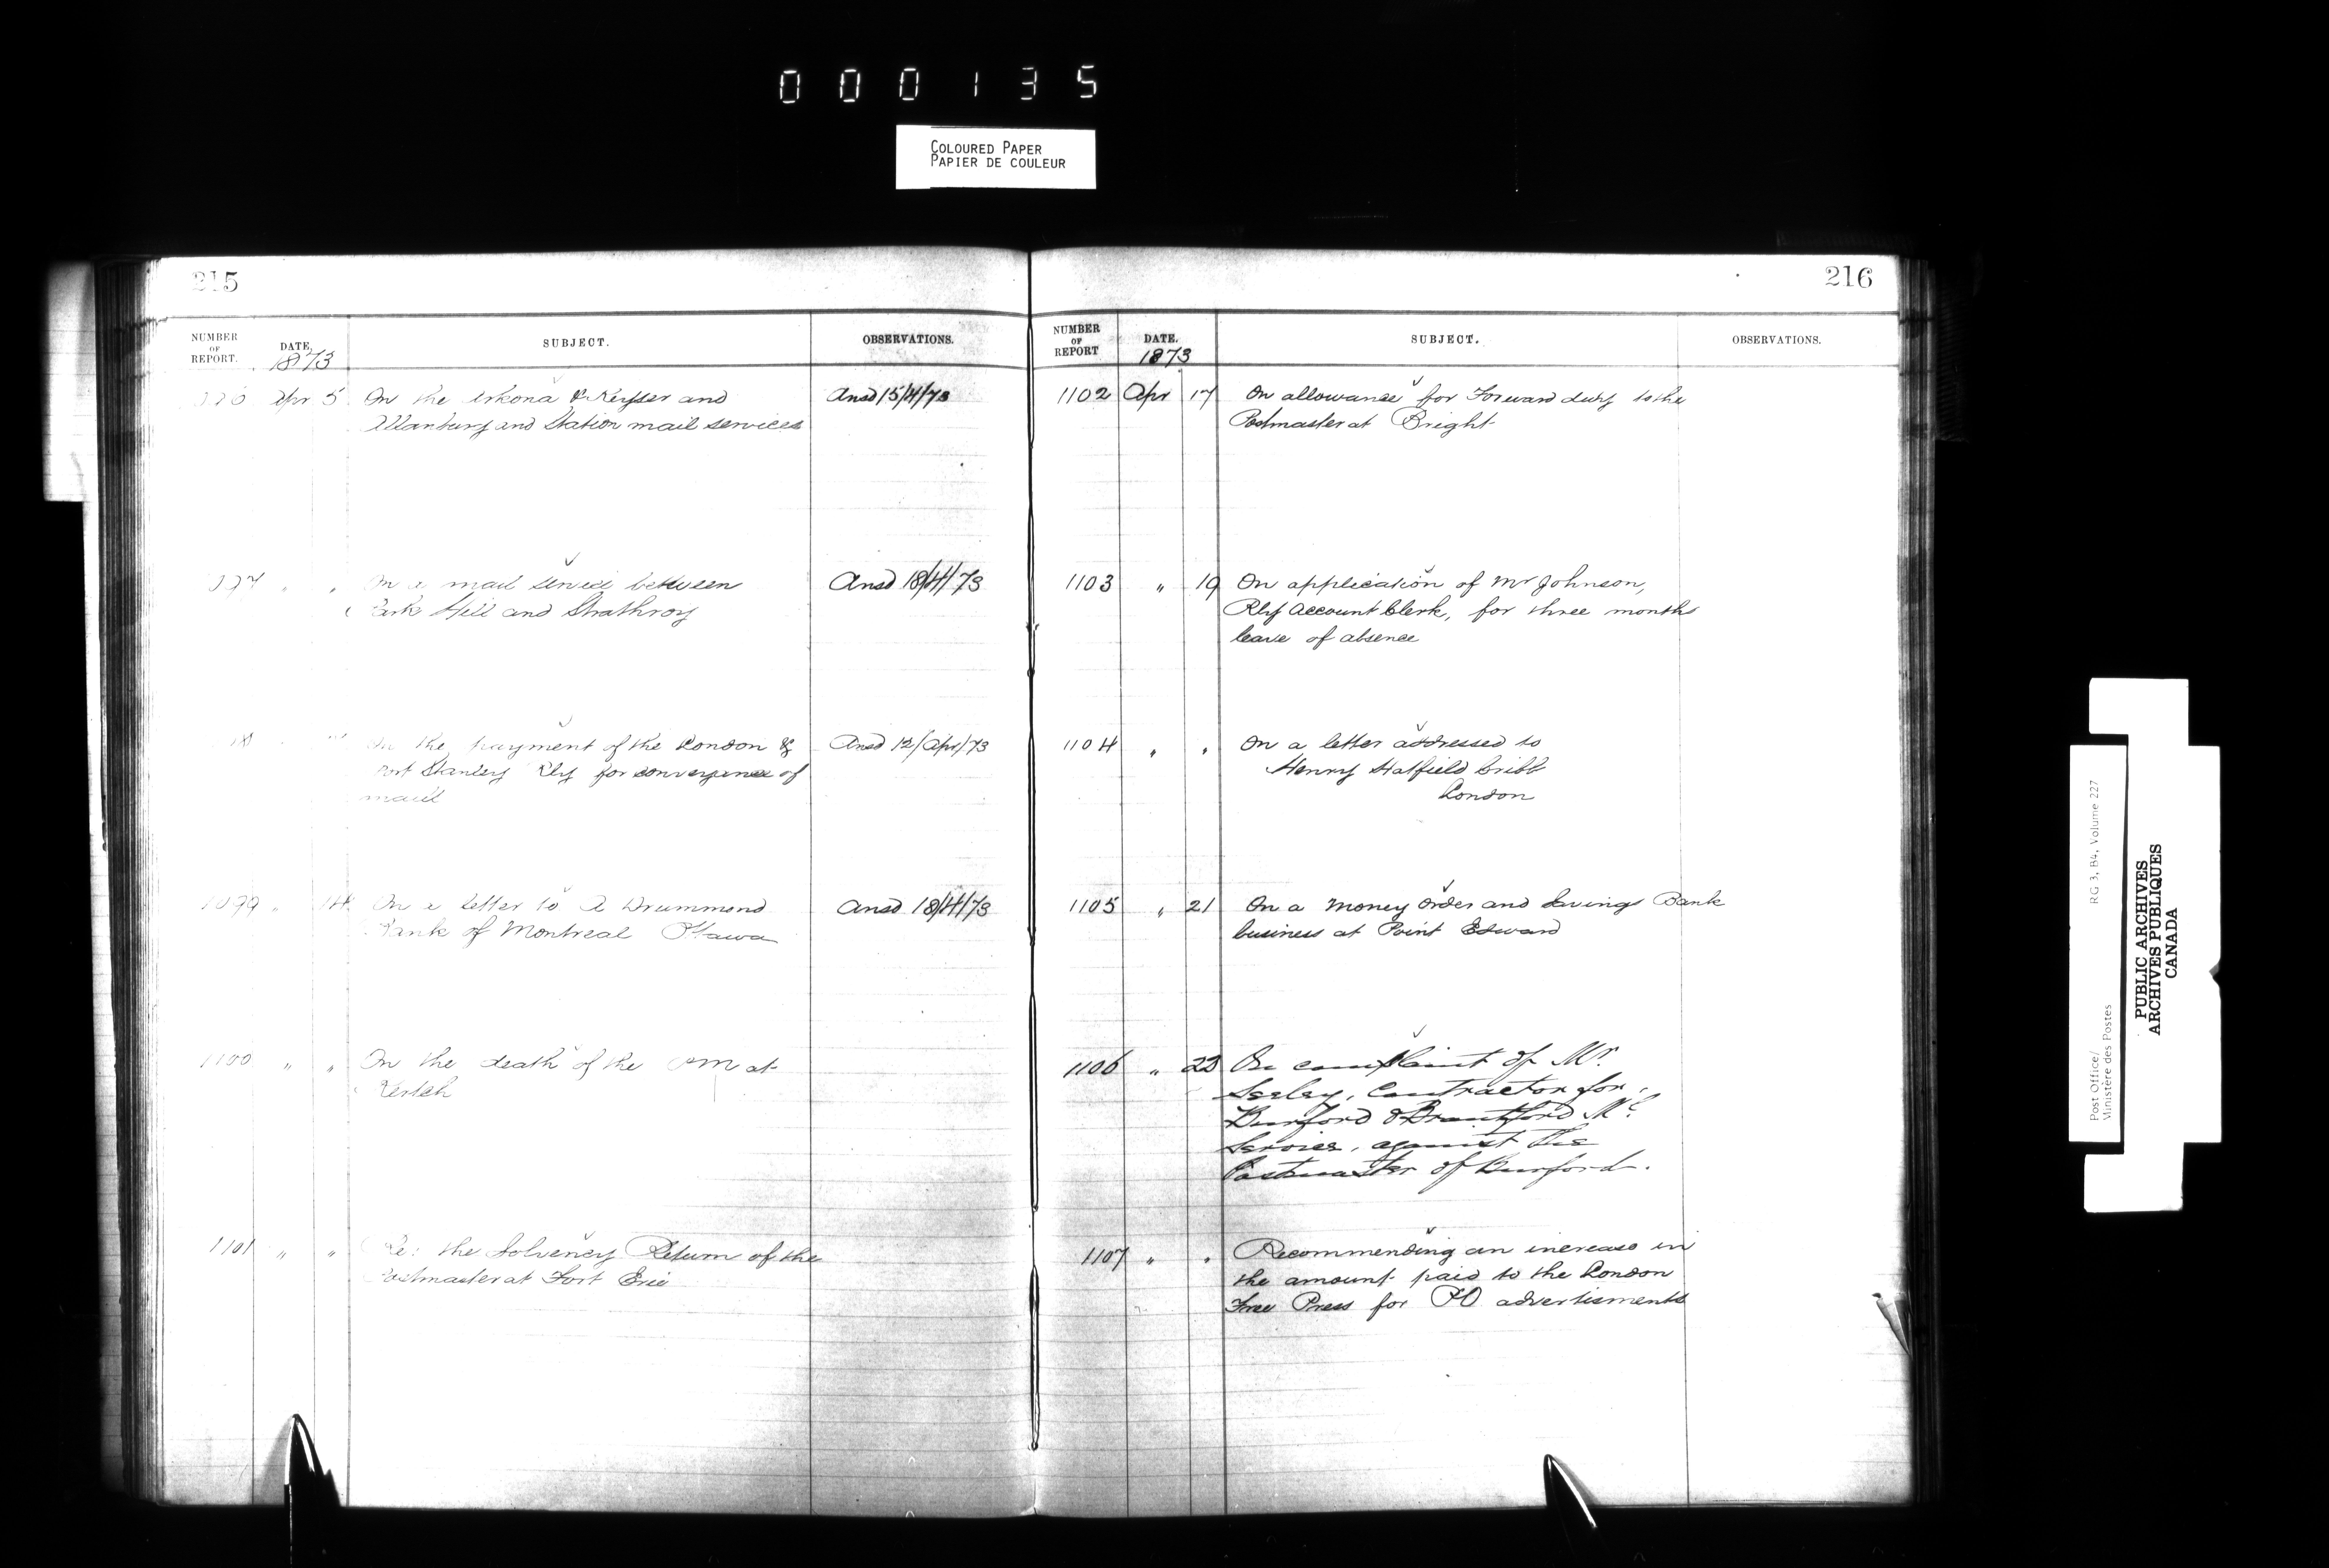 000135
COLOURED PAPER
PAPIER DE COULEUR
215
NUMBER OF REPORT. DATE, SUBJECT. OBSERVATIONS.
1873
Apr 5 On the Arkona & Keyser and Ansd 15/4/73
Allanburg and Station mail services
On a mail service between Ansd 18/4/73
Park Hill and Strathroy
On the payment of the London & Ansd 12/Apr/73
Port Stanley Rly for conveyance of
mail
1099 " 14 On a letter to A Drummond Ansd 18/4/73
Bank of Montreal Ottawa
1100 " " On the death of the PM at
Kertch
1101 " " Re: the Solvency Return of the
Postmaster at Fort Erie
216
NUMBER OF REPORT DATE. SUBJECT. OBSERVATIONS.
1873
1102 Apr 17 On allowance for Forward duty to the
Postmaster at Bright
1103 " 19 On application of Mr Johnson,
Rly Account Clerk, for three months
leave of absence
1104 " " On a letter addressed to
Henry Hatfield Cribb
London
1105 " 21 On a Money Order and Savings Bank
business at Point Edward
1106 " 22 On complaint of Mr.
Seeley, Contractor for
Burford & Brantford Ml
Service, against the
Postmaster of Burford.
1107 " " Recommending an increase in
the amount paid to the London
Free Press for PO advertisments
Post Office/ RG 3, B4, Volume 227
Ministère des Postes
PUBLIC ARCHIVES
ARCHIVES PUBLIQUES
CANADA